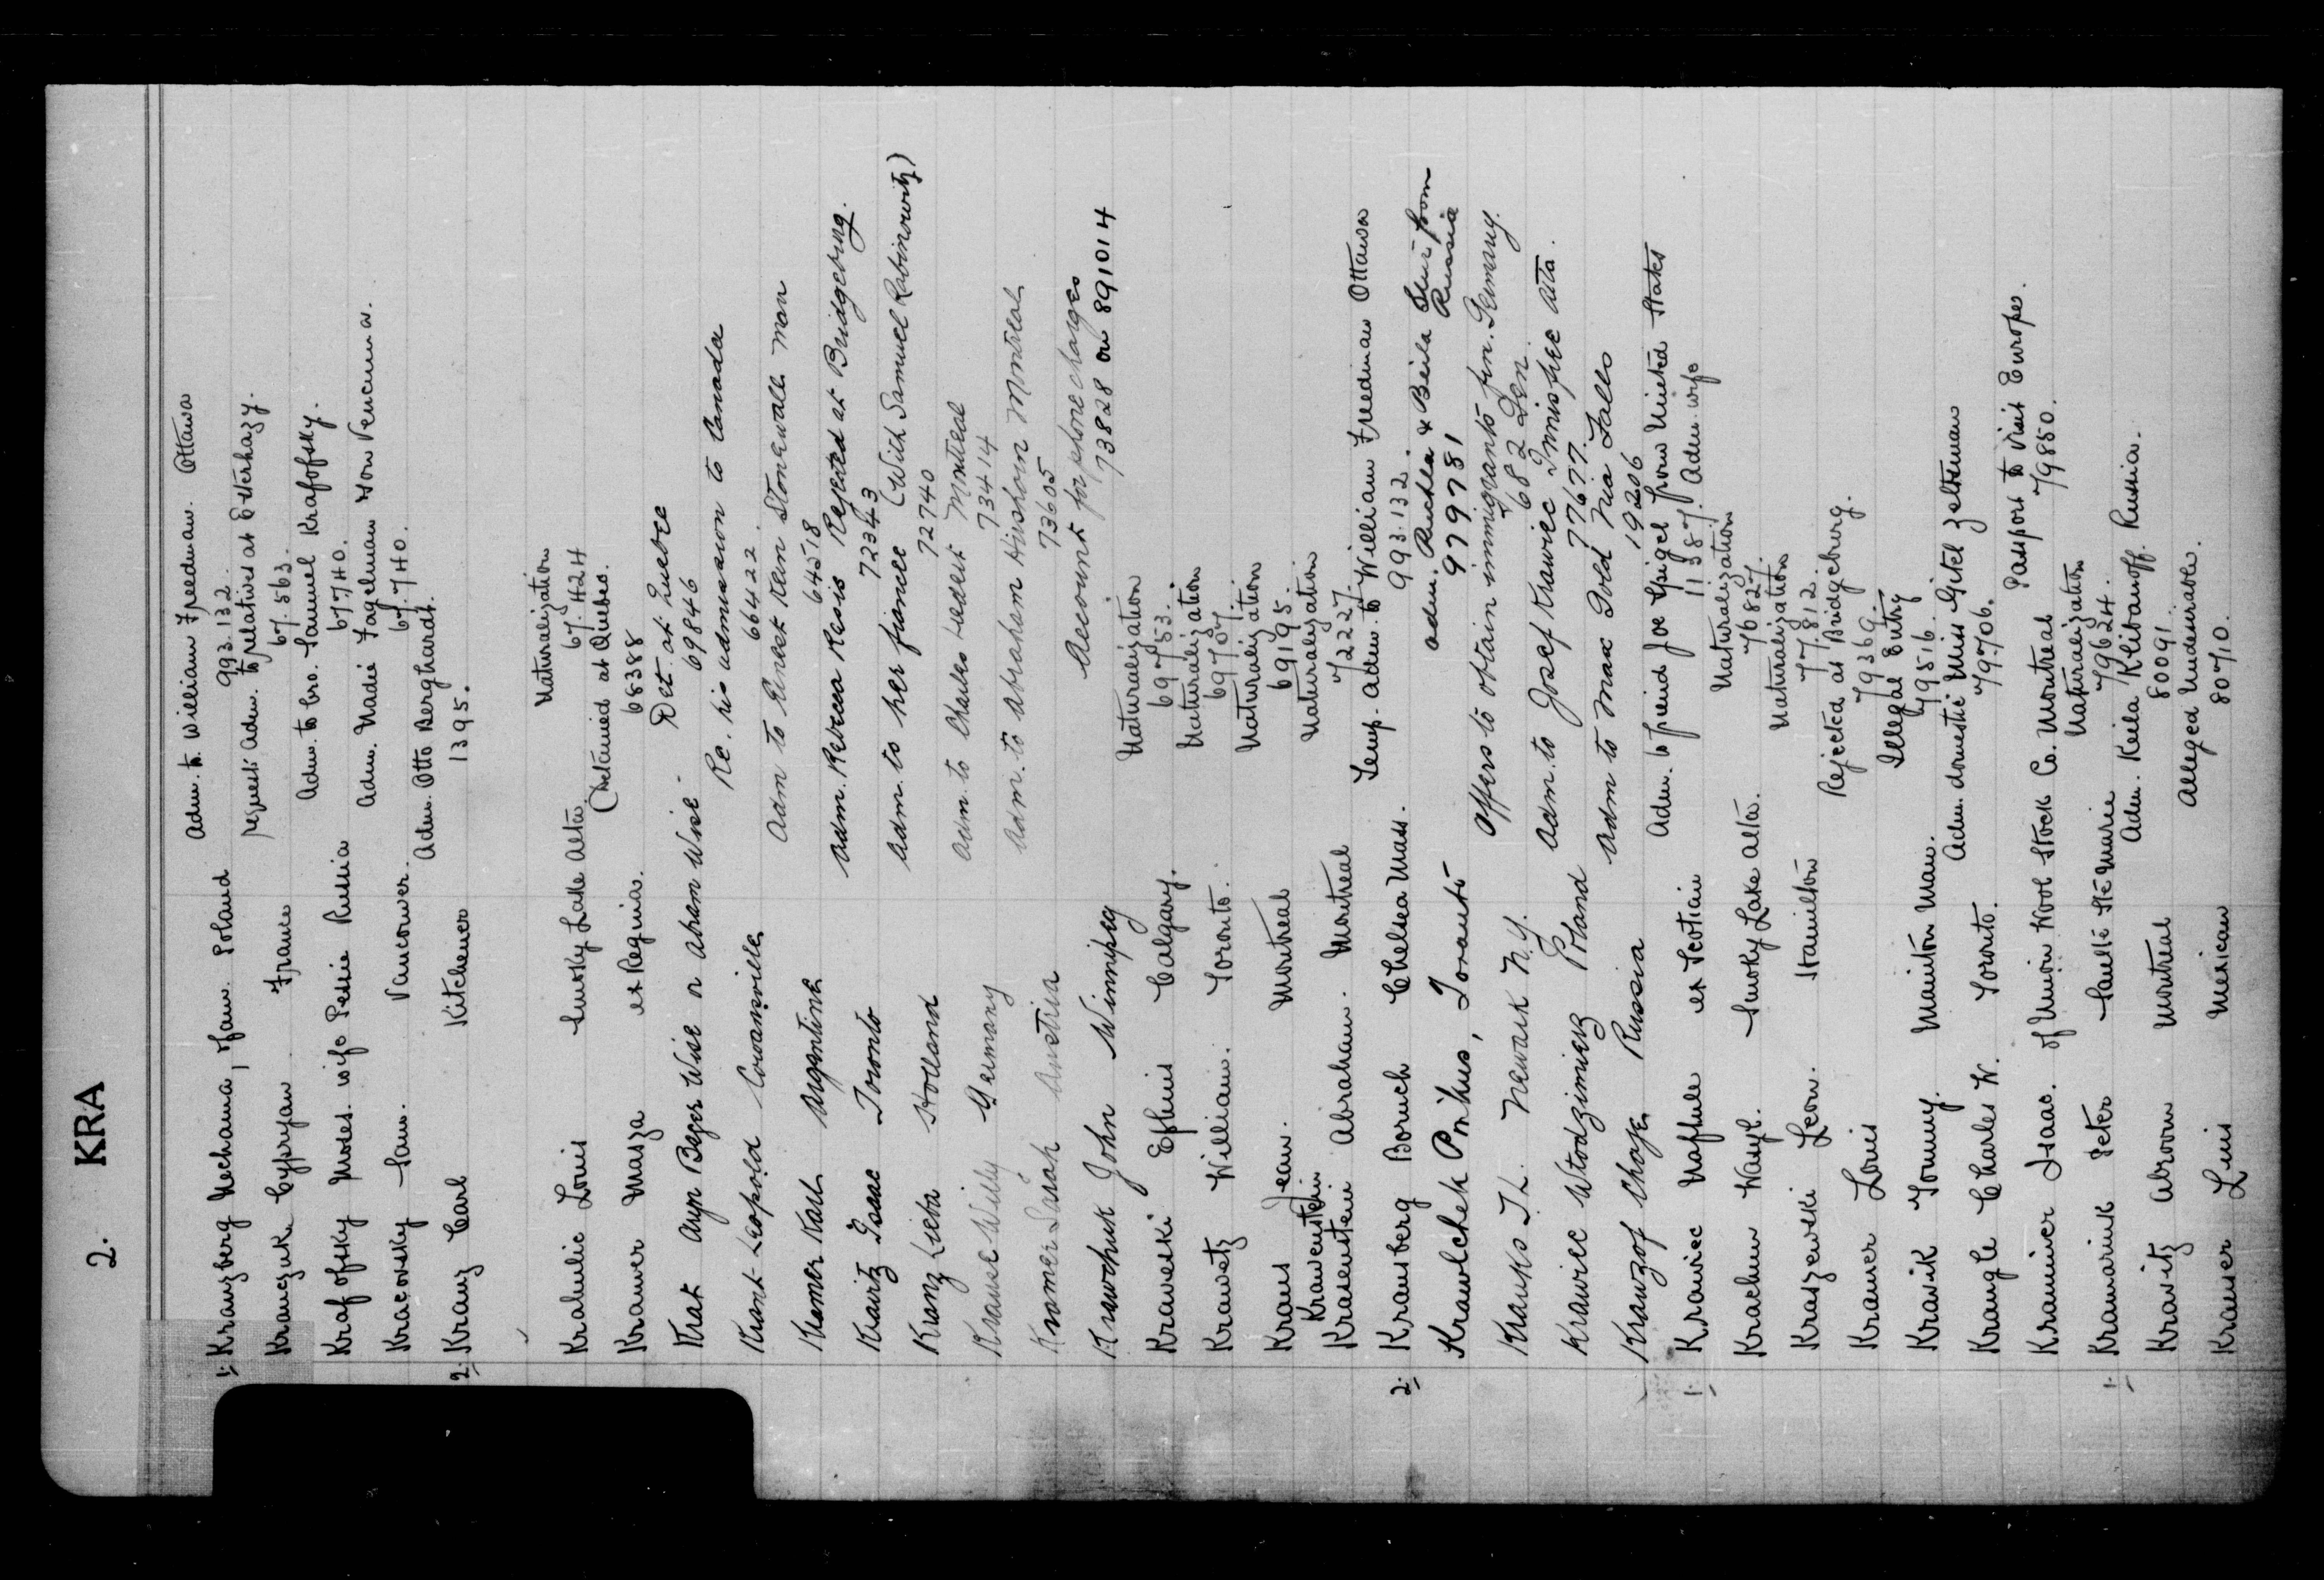 2. KRA
1. Kranzberg Nechama, of am. Poland Adm. to William Freedman. Ottawa
993.132.
Krauczuk Cypryan France request Adm. to relatives at Esterhazy.
67.563.
Krafofsky Moses. wife Pessie Russia Adm. to bro. Samuel Krafofsky.
67740.
Kracovsky Sam. Vancouver. Adm. Nadie Fagelman
67.740.
2. Kranz Carl Kitchener Adm. Otto Berghardt.
1395.
Krahulic Louis Smoky Lake Alta. Naturalization
67.424
Kramer Masza ex Regina. (Detained at Quebec.
68388
Krak Ayp Bayer Wise or Abram Wise - Det. at Quebec
69846
Krant Leopold Cowansville Re. his admission to Canada
66422.
Kramer Karl Argentine Adm to Ernest Kern Stonewall Man
64518
Kravitz Isaac Toronto Adm. Rebecca Resis Rejected at Bridgeburg.
72343
Kranz Lieba Holland Adm. to her fiancee (With Samuel Rabinowitz)
72740
Krause Willy Germany Adm. to Charles Hedert Montreal
73414
Kramer Sarah Austria Adm. to Abraham Hirshorn Montreal
73605
Krawchuk John Winnipeg Account for phone charges
73828 on 891014
Kraweski Ephim Calgary. Naturalization
69753.
Krawetz William. Toronto. Naturalization
69707.
Kraus Jean. Montreal Naturalization
69195.
Krawenstein
Krasenstein Abraham. Montreal Naturalization
72227.
2. Kransberg Boruch Chelsea Mass. Temp. Adm. to William Freedman Ottawa
993.132.
Krawlchek Pinkus, Toronto Adm. Ruchla & Beila from
Russia
979781
Krauks T. L. Newark N.Y. Offers to obtain immigrants fm. Germany.
682 Den.
Krawiec Wlodzimierz Poland Adm. to Josef Krawiec Innisfree Alta.
77677.
Krawzof Chaje Russia Adm to Max Gold Nia Falls
19206
1. Krawiec Naftule ex Scotian Adm. to friend Joe Spigel from United States
11387. Adm. wife
Krachun Wasyl. Smoky Lake Alta. Naturalization
76827.
Kraszewski Leon. Hamilton Naturalization
77.812.
Kramer Louis Rejected at Bridgeburg.
79369.
Kravik Tommy. Maniton Man. Illegal Entry
79516.
Krangle Charles W. Toronto. Adm. domestic Miss Gitel Zeltman
79.706.
Krammer Isaac. of Union Wool Stock Co. Montreal Passport to visit Europe.
79850.
1. Kramarink Peter Sault Ste Marie Naturalization
79624.
Kravitz Abroom Montreal Adm. Keila Klibanoff. Russia.
80091
Krauser Luis Mexican Alleged Undesirable.
80710.